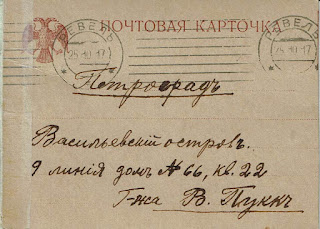 ПОЧТОВАЯ КАРТОЧКА
РЕВЕЛЬ
РЕВЕЛЬ
Петроградъ
Васильевскій островъ.
9 линія домъ № 66, кв. 22
Г-жа В. Пуккъ